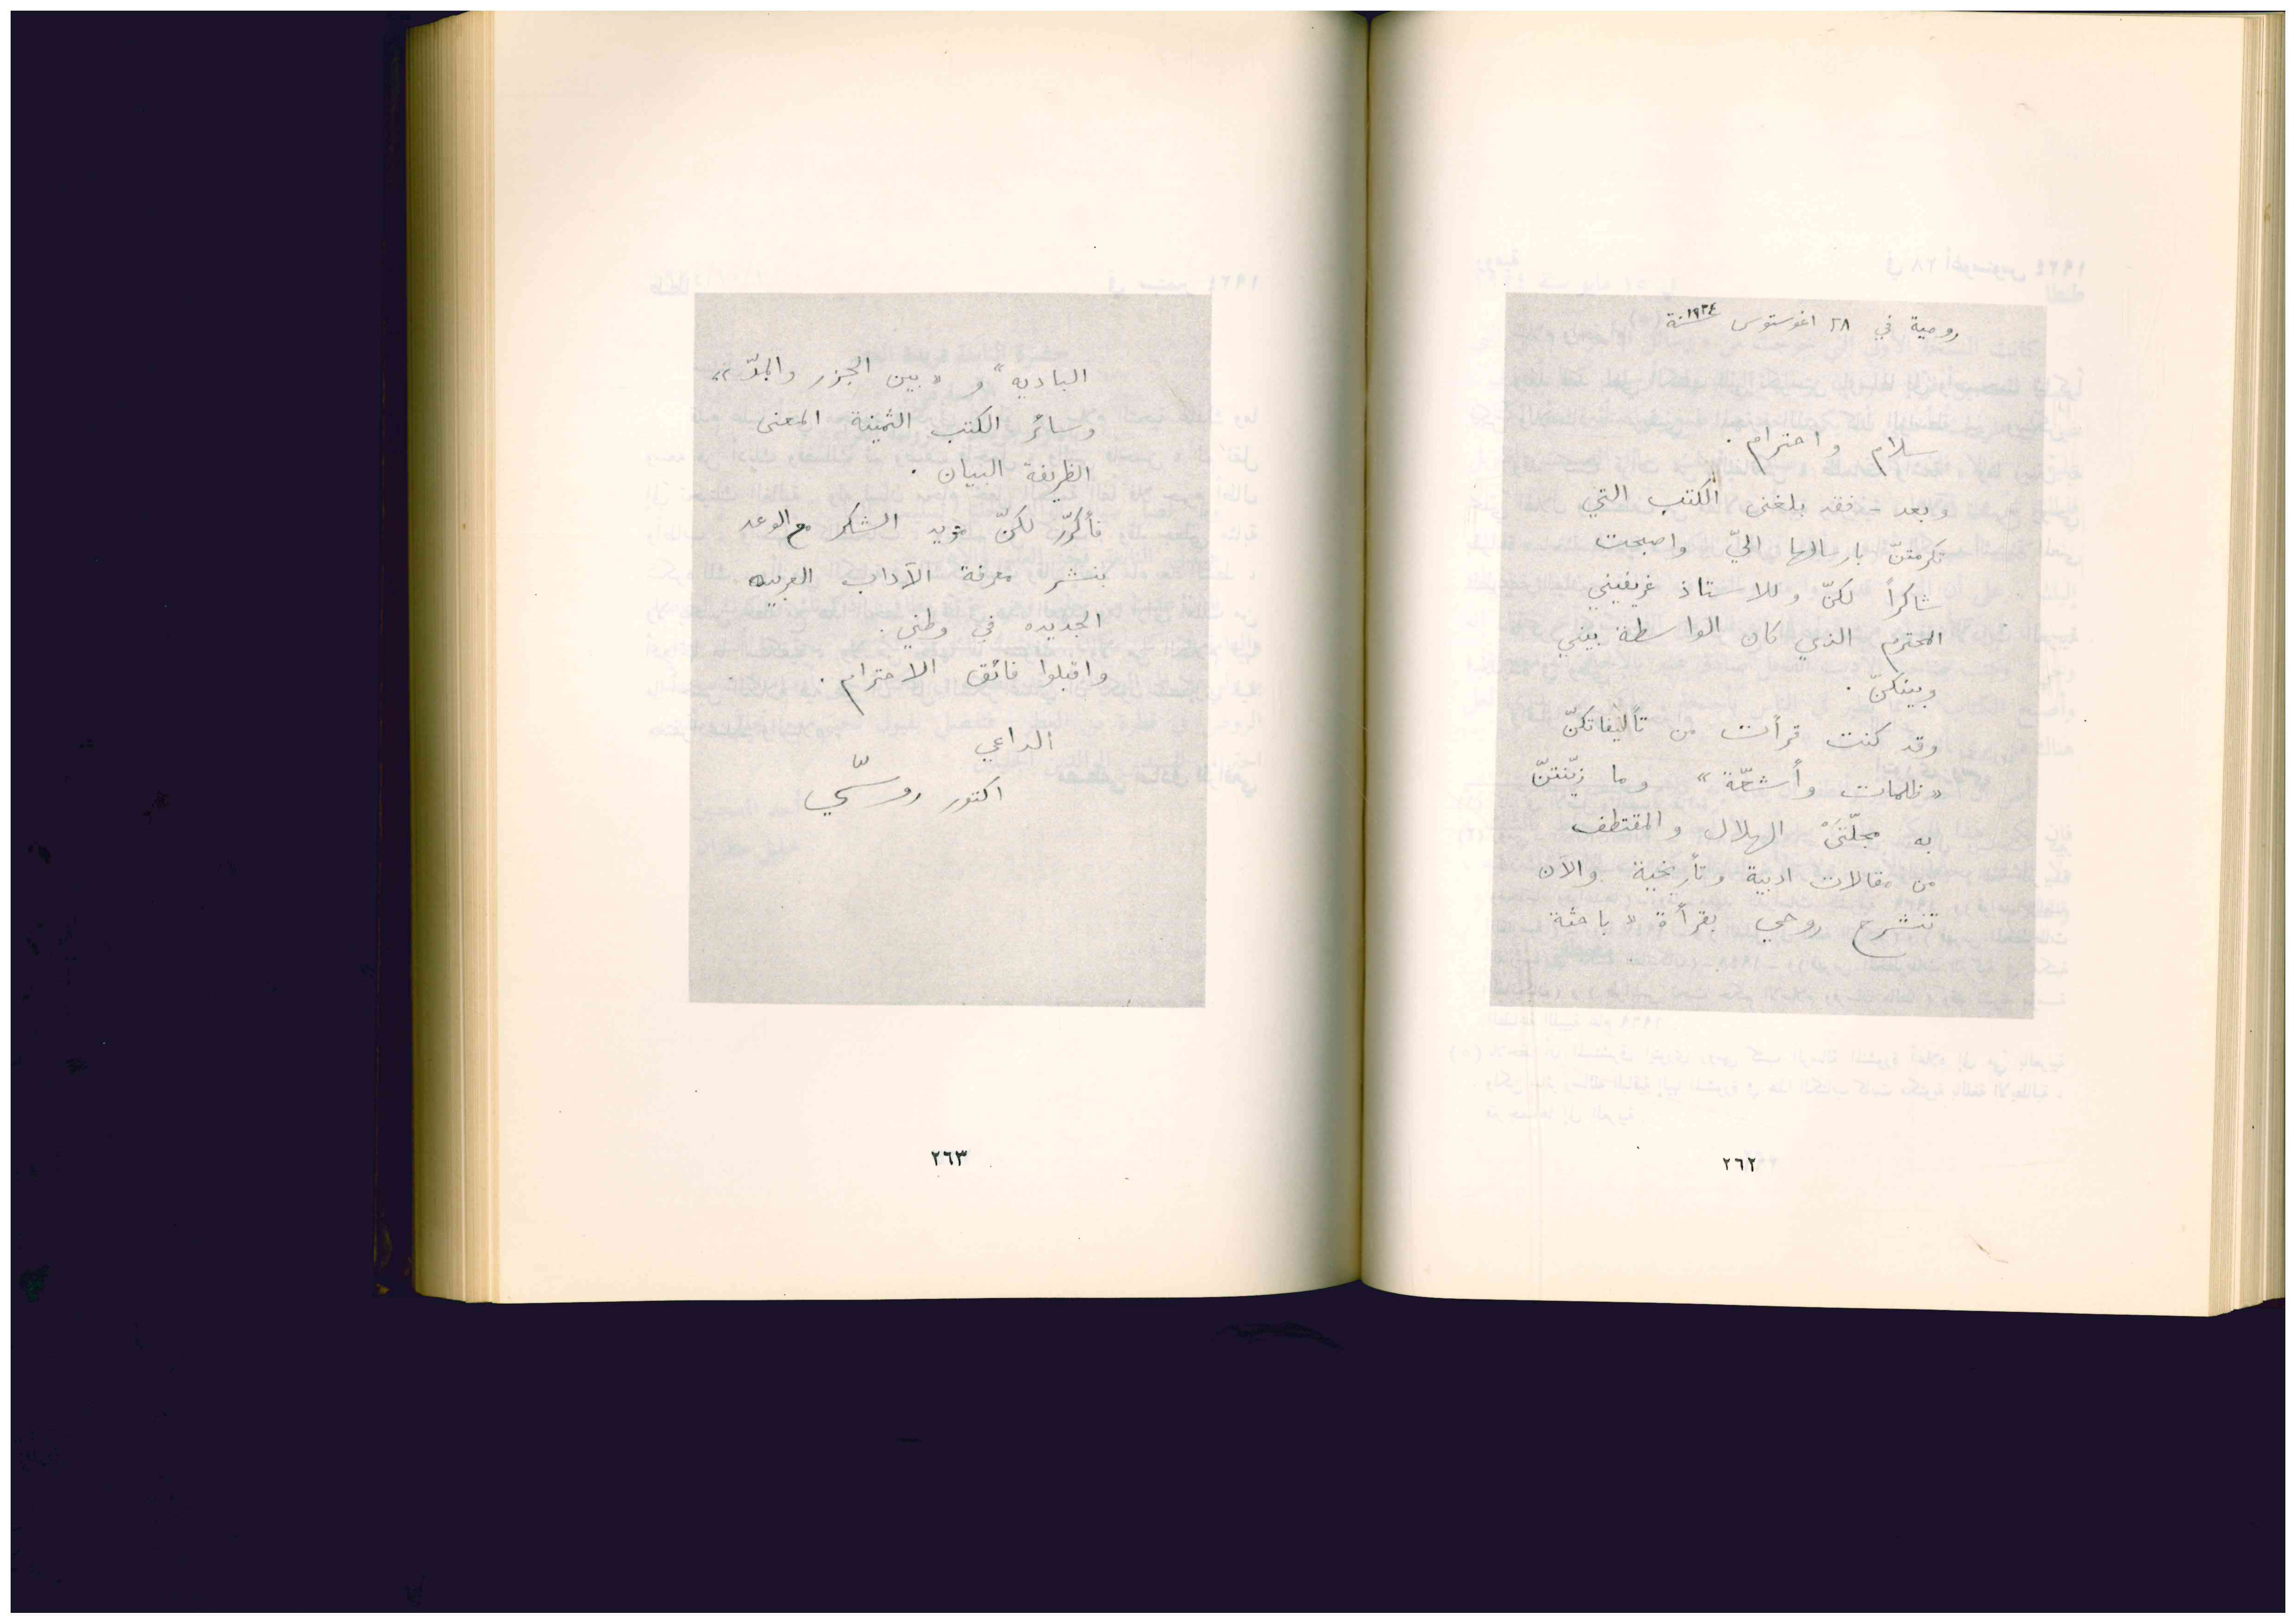 رومية في ٢٨ اغوستوس سنة ١٩٢٤
سلام واحترام .
وبعد - فقد بلغني الكتب التي
تكرمتنّ بارسالها اليّ واصبحت
شاكراً لكنّ وللاستاذ غريفيني
المحترم الذي كان الواسطة بيني
وبينكنّ .
وقد كنت قرأت من تأليفاتكنّ
« ظلمات وأشعّة » وما زيّنتنّ
به مجلّتَيْ الهلال والمقتطف
من مقالات ادبية وتأريخية والآن
تنشرح روحي بقرأة « باحثة
٢٦٢
الباديه » و « بين الجزر والمدّ »
وسائر الكتب الثمينة المعنى
الظريفة البيان .
فأكرّر لكنّ مزيد الشكر مع الوعد
بنشر معرفة الآداب العربيه
الجديده في وطني .
واقبلوا فائق الاحترام .
الداعي
اكتور روسّي
٢٦٣